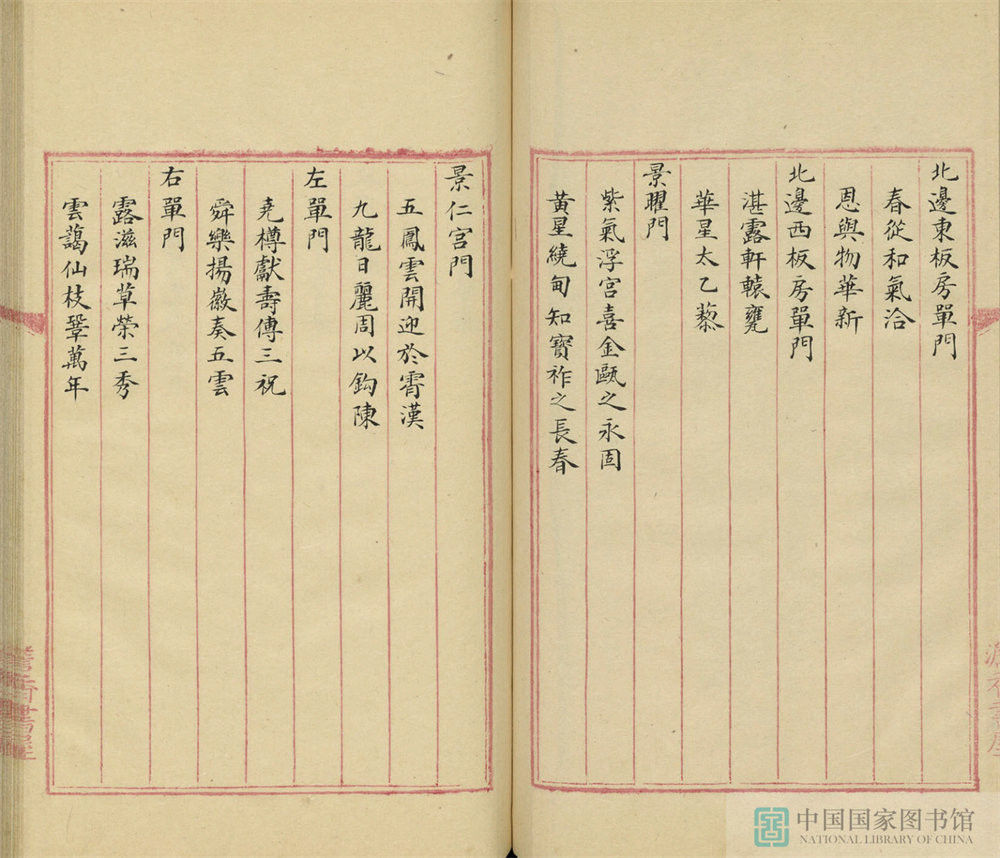 北邊東板房單門
春從和氣洽
恩與物華新
北邊西板房單門
湛露軒轅甕
華星太乙藜
景曜門
紫氣浮宮喜金甌之永固
黃星繞甸知寶祚之長春
景仁宮門
五鳳雲開迎於霄漢
九龍日麗周以鈎陳
左單門
堯樽獻壽傳三祝
舜樂揚徽奏五雲
右單門
露滋瑞草榮三秀
雲藹仙枝鞏萬年
中国国家图书馆
NATIONAL LIBRARY OF CHINA